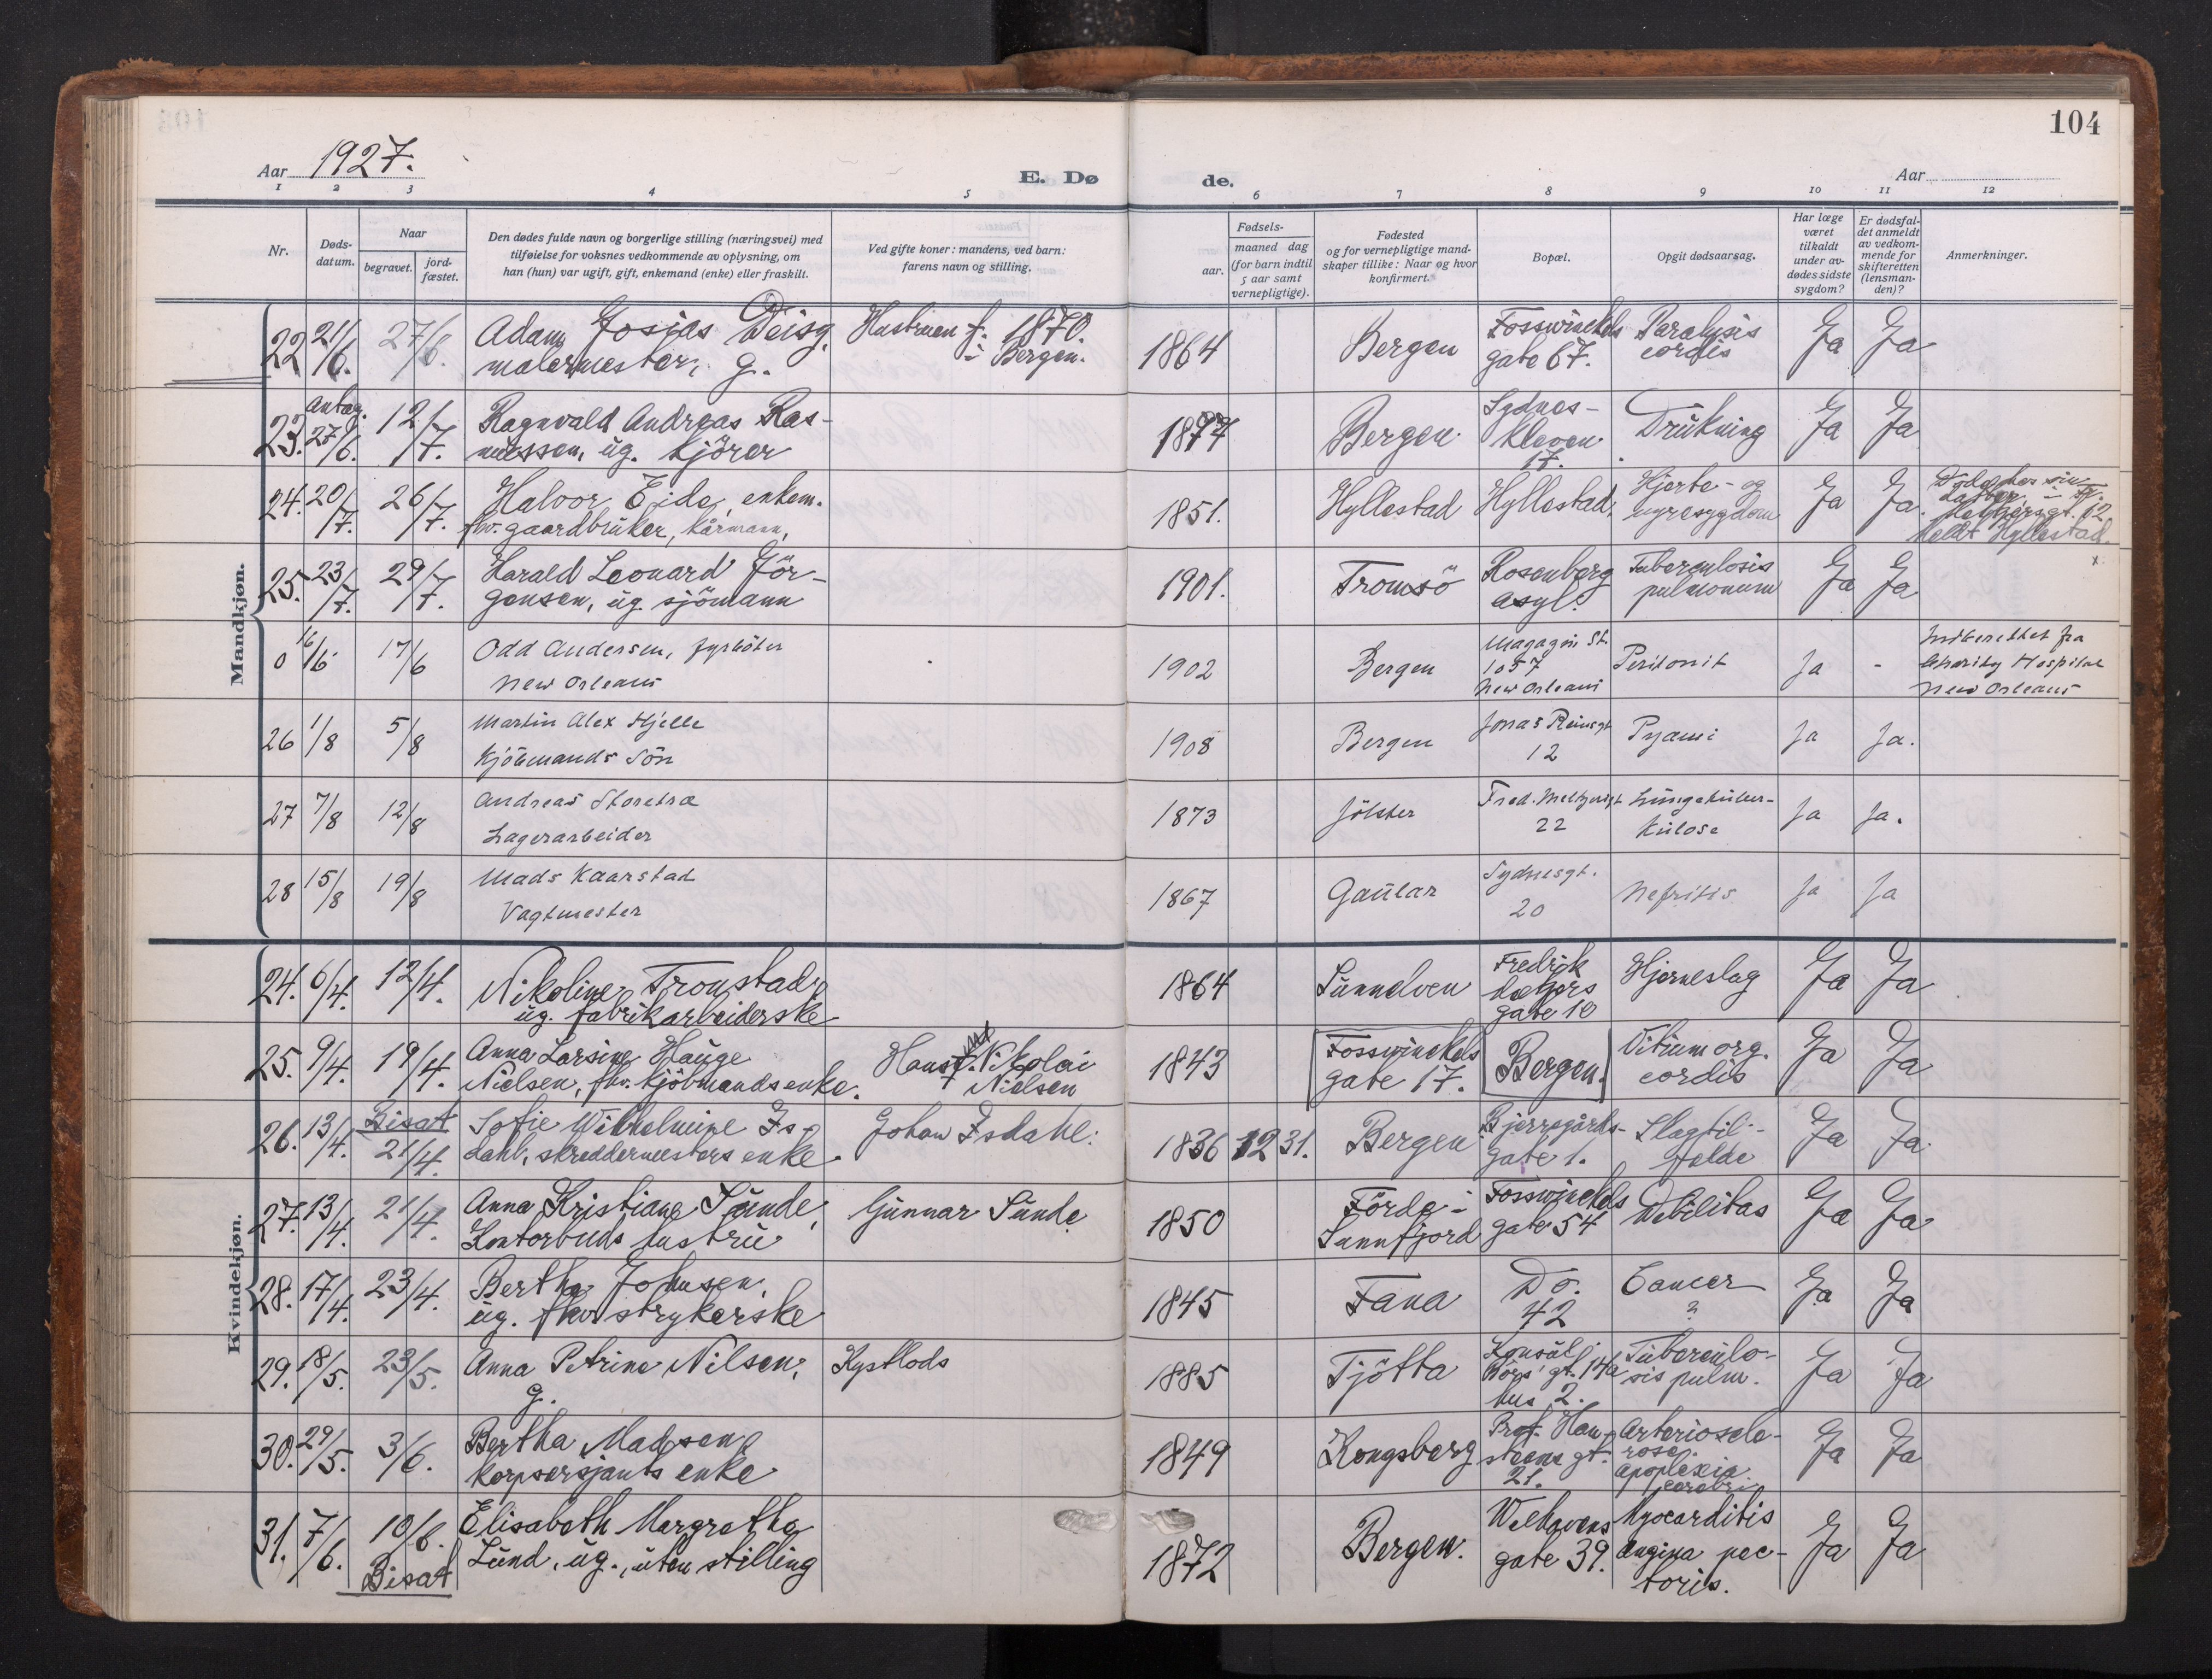 104
Aar 1927.
E. Dø
de.
Aar
1 2 3 4 5 6 7 8 9 10 11 12
Nr.
Døds-
datum.
Naar
begravet.
jord-
fæstet.
Den dødes fulde navn og borgerlige stilling (næringsvei) med
tilføielse for voksnes vedkommende av oplysning, om
han (hun) var ugift, gift, enkemand (enke) eller fraskilt.
Ved gifte koner: mandens, ved barn:
farens navn og stilling.
Fødsels-
aar.
maaned dag
(for barn indtil
5 aar samt
vernepligtige).
Fødested
og for vernepligtige mand-
skaper tillike: Naar og hvor
konfirmert.
Bopæl.
Opgit dødsaarsag.
Har læge
været
tilkaldt
under av-
dødes sidste
sygdom?
Er dødsfal-
det anmeldt
av vedkom-
mende for
skifteretten
(lensman-
den)?
Anmerkninger.
Mandkjøn.
22 21/6. 27/6. Adam Josias Deisg. Hustruen f. 1870. 1864 Bergen Fosswinckels Paralysis Ja Ja
malermester, g. i Bergen. gate 67. cordis
Antag.
23. 27/6. 12/7. Ragnvald Andreas Ras- 1877 Bergen Sydnes- Drukning Ja Ja
mussen, ug. kjörer kleven
17.
24. 20/7. 26/7. Halvor Eide, enkem. 1851. Hyllestad Hyllestad. Hjerte- og Ja Ja.
fhv. gaardbruker, kårmann, nyresygdom
Meldt Hyllestad.
25. 23/7. 29/7. Harald Leonard Jör- 1901. Tromsö Rosenberg Tuberculosis Ja Ja x.
gensen, ug. sjömann asyl. pulmonum
0 16/6 17/6 Odd Andersen, fyrböter 1902 Bergen Magazin St. Peritonit Ja - Indberettet fra
New Orleans 1057 Charity Hospital
New Orleans New Orleans
26 1/8 5/8 Martin Alex Hjelle 1908 Bergen Jonas Reinsgt Pyæmi Ja Ja.
Kjöbmands Sön 12
27 7/8 12/8 Andreas Storetræ 1873 Jölster Fred. Meltzersgt Lungetuber- Ja Ja.
Lagerarbeider 22 kulose
28 15/8 19/8 Mads Kaarstad 1867 Gaular Sydnesgt. Nefritis Ja Ja
Vagtmester 20
Kvindekjøn.
24. 6/4. 12/4. Nikoline Tronstad, 1864 Sunnelven Fredrik Hjerneslag Ja Ja
ug. fabrikarbeiderske gate 10
25. 9/4. 19/4. Anna Larsine Hauge Hans Nikolai 1843 Fosswinckels Bergen. Vitium org. Ja Ja
Nielsen, fhv. kjöbmandsenke. Nielsen gate 17. cordis
26. 13/4. Bisat Sofie Wilhelmine Is- Johan Isdahl. 1836 12 31. Bergen Bjerregårds- Slagtil- Ja Ja
21/4. dahl, skreddermesters enke. gate 1. felde
27. 13/4. 21/4. Anna Kristiane Sunde, Gunnar Sunde 1850 Förde i Fosswinckels Debilitas Ja Ja
Kontorbuds hustru Sunnfjord gate 54
28. 17/4. 23/4. Bertha Johnsen, 1845 Fana Do. Cancer Ja Ja
ug. fhv. strykerske 42 ?
29. 18/5. 23/5. Anna Petrine Nilsen, Kystlods 1885 Tjötta Konsul Tuberculo- Ja Ja
g. Börs' gt. 14a sis pulm.
hus 2.
30. 29/5. 3/6. Bertha Madsen, 1849 Kongsberg Prof. Han- Arterioscle- Ja Ja
korpsersjants enke steens gt. rose.
21. apoplexia
cerebri
31. 7/6. 10/6. Elisabeth Margrethe 1872 Bergen. Welhavens Myocarditis Ja Ja
Bisat Lund, ug., uten stilling gate 39. Angina pec-
toris.